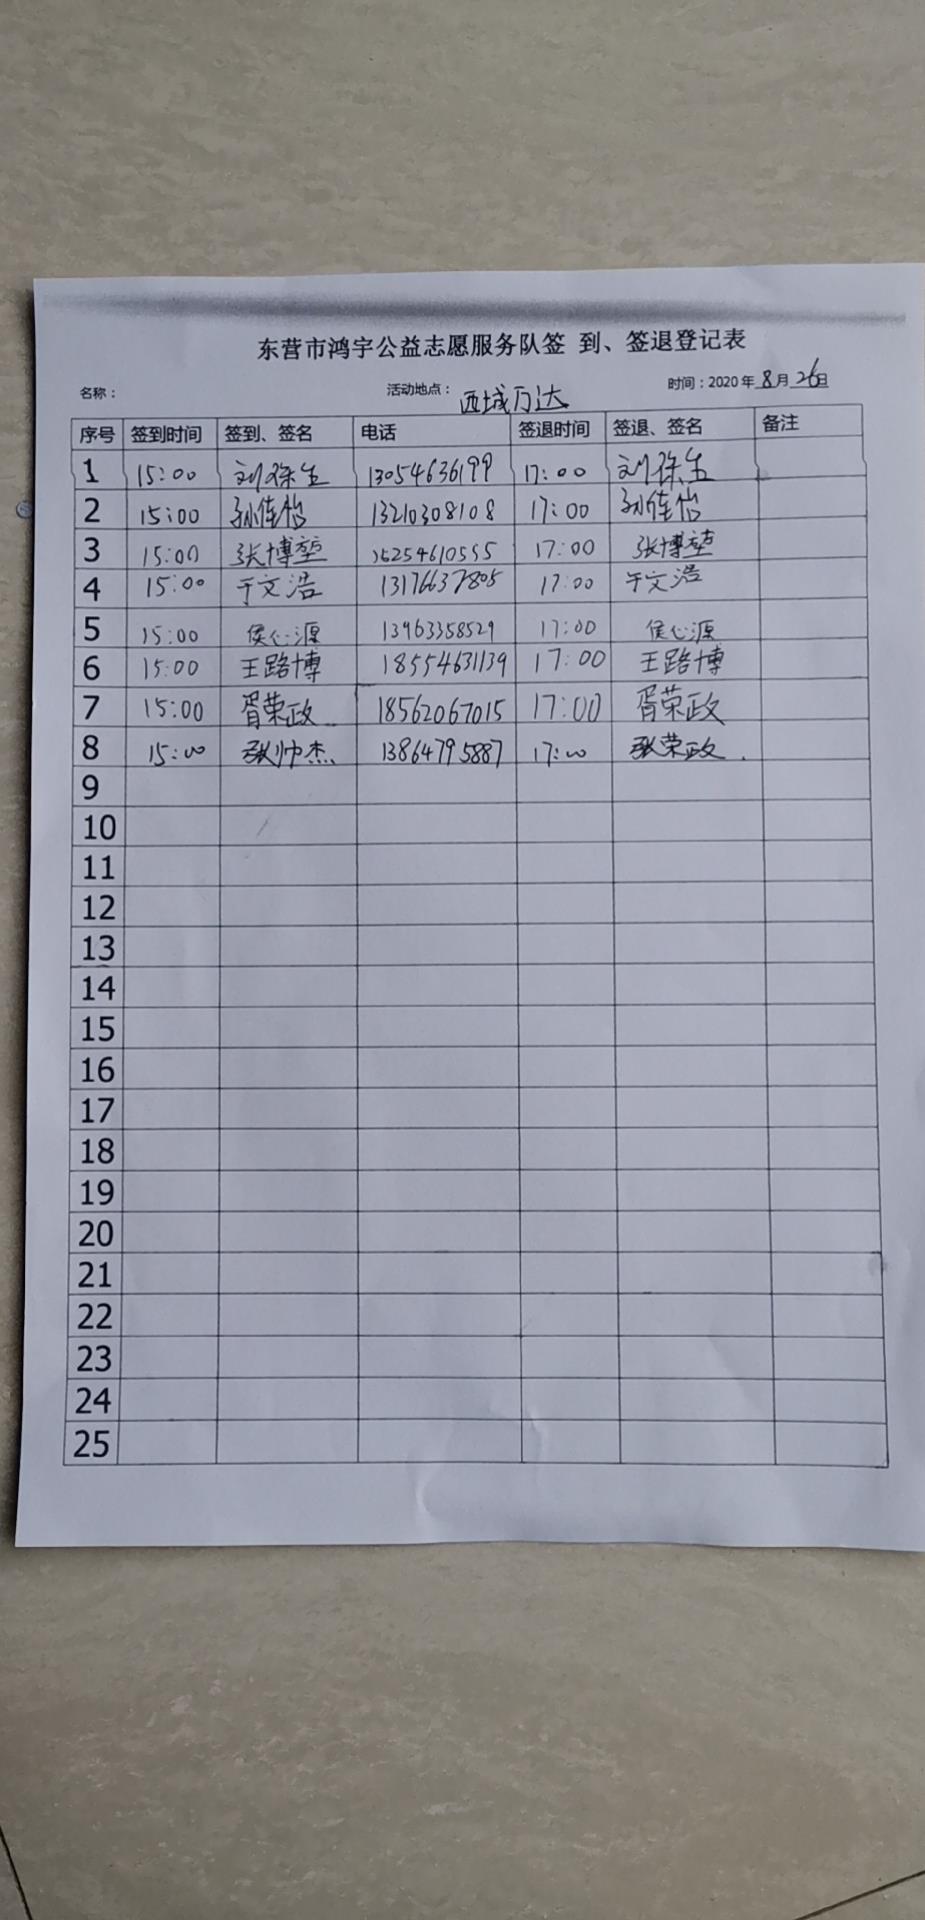 东营市鸿宇公益志愿服务队签 到、签退登记表
名称： 活动地点： 西城万达 时间：2020年 8月 26日
序号 签到时间 签到、签名 电话 签退时间 签退、签名 备注
1 15:00 13054636199 17:00
2 15:00 孙佳怡 13210308108 17:00 孙佳怡
3 15:00 张博堃 15254610555 17:00 张博堃
4 15:00 于文浩 13176637805 17:00 于文浩
5 15:00 侯心源 13963358529 17:00 侯心源
6 15:00 王路博 18554631139 17:00 王路博
7 15:00 胥荣政 18562067015 17:00 胥荣政
8 15:00 张帅杰 13864795887 17:00 张荣政
9
10
11
12
13
14
15
16
17
18
19
20
21
22
23
24
25